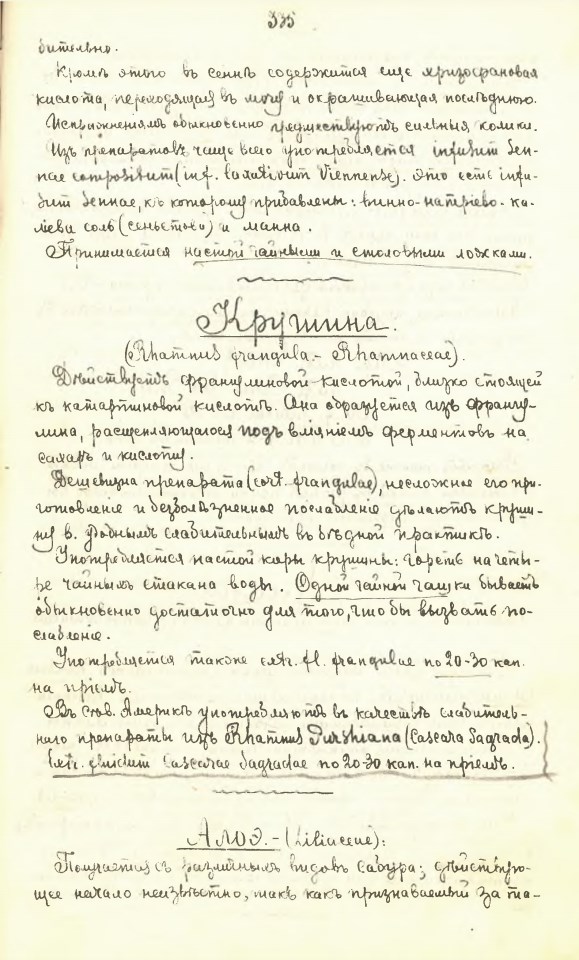 335
бительно.
Кромѣ этого въ сеннѣ содержится еще хризофановая
кислота, переходящая въ мочу и окрашивающая послѣднюю.
Испражненіямъ обыкновенно предшествуютъ сильныя колики.
Изъ препаратовъ чаще всего употребляется infusum Sen-
nae compositum (inf. laxativum Viennense). Это есть infu-
sum Sennae, къ которому прибавлены: винно-натріево-ка-
ліева соль (сеньетова) и манна.
Принимается настой чайными и столовыми ложками.
Крушина.
(Rhamnus frangula.- Rhamnaceae).
Дѣйствуетъ франгулиновой кислотой, близко стоящей
къ катартиновой кислотѣ. Она образуется изъ франгу-
лина, расщепляющагося подъ вліяніемъ ферментовъ на
сахаръ и кислоту.
Дешевизна препарата (cort. frangulae), несложное его при-
готовленіе и безболѣзненное послабленіе дѣлаютъ круши-
ну в. удобнымъ слабительнымъ въ бѣдной практикѣ.
Употребляется настой коры крушины: горсть на четы-
ре чайныхъ стакана воды. Одной чайной чашки бываетъ
обыкновенно достаточно для того, что бы вызвать по-
слабленіе.
Употребляется также extr. fl. frangulae по 20-30 кап.
на пріемъ.
Въ Сѣв. Америкѣ употребляютъ въ качествѣ слабитель-
наго препараты изъ Rhamnus Purshiana (Cascara Sagrada).
Extr. fluidum Cascarae Sagradae по 20-30 кап. на пріемъ.
Алоэ.- (Liliaceae):
Получается съ различныхъ видовъ сабура; дѣйствую-
щее начало неизвѣстно, такъ какъ признаваемый за та-